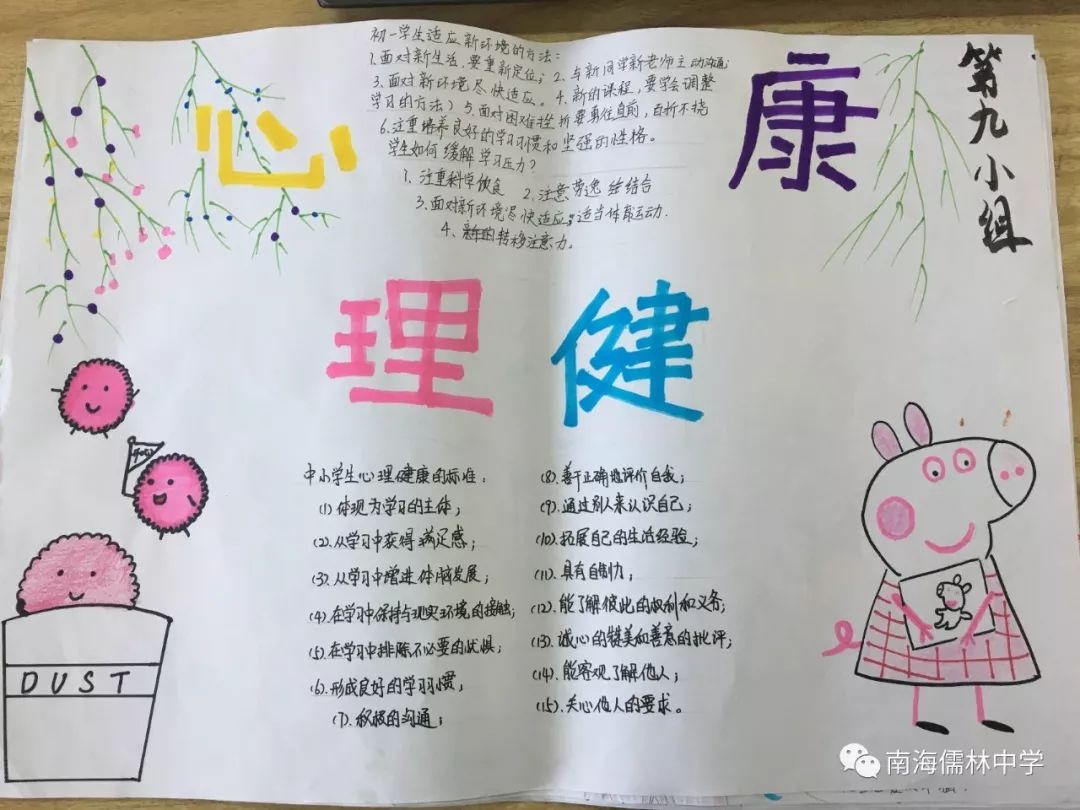 初一学生适应新环境的方法：
1.面对新生活，要重新定位；2、与新同学新老师主动沟通
3、面对新环境尽快适应。4、新的课程，要学会调整
学习的方法）5.面对困难挫折要勇往直前，百折不挠
6.注重培养良好的学习习惯和坚强的性格。
学生如何缓解学习压力？
1、注重科学饮食 2、注意劳逸结合
3.面对新环境尽快适应；适当体育运动.
4、转移注意力。
心
康
理
健
第九小组
中小学生心理健康的标准：
(1) 体现为学习的主体；
(2).从学习中获得满足感；
(3).从学习中增进体脑发展；
(4).在学习中保持与现实环境的接触；
(5).在学习中排除不必要的忧惧；
(6).形成良好的学习习惯；
(7).积极的沟通；
(8).善于正确地评价自我；
(9).通过别人来认识自己；
(10).拓展自己的生活经验；
(11).具有自制力；
(12).能了解彼此的权利和义务；
(13).诚心的赞美和善意的批评；
(14).能客观了解他人；
(15).关心他人的要求。
DUST
南海儒林中学